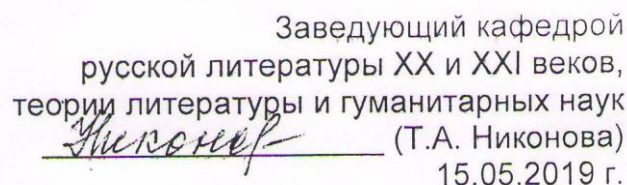 Заведующий кафедрой
русской литературы XX и XXI веков,
теории литературы и гуманитарных наук
Никонов (Т.А. Никонова)
15.05.2019 г.